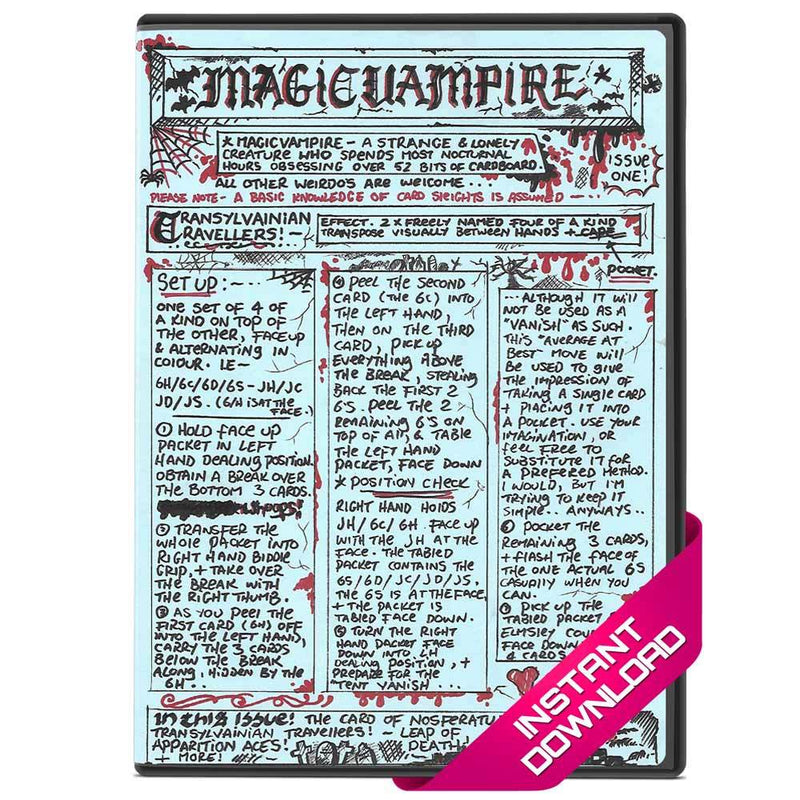 MAGICVAMPIRE
* MAGICVAMPIRE - A STRANGE & LONELY
CREATURE WHO SPENDS MOST NOCTURNAL
HOURS OBSESSING OVER 52 BITS OF CARDBOARD.
ALL OTHER WEIRDOS ARE WELCOME...
ISSUE
ONE!
PLEASE NOTE - A BASIC KNOWLEDGE OF CARD SLEIGHTS IS ASSUMED
TRANSYLVAINIAN
TRAVELLERS! -
EFFECT. 2 X FREELY NAMED FOUR OF A KIND
TRANSPOSE VISUALLY BETWEEN HANDS + CAPE
POCKET.
SET UP: -
ONE SET OF 4 OF
A KIND ON TOP OF
THE OTHER, FACE UP
& ALTERNATING IN
COLOUR. IE -
6H/6C/6D/6S - JH/JC
JD/JS. (6H IS AT THE
FACE.)
① HOLD FACE UP
PACKET IN LEFT
HAND DEALING POSITION.
OBTAIN A BREAK OVER
THE BOTTOM 3 CARDS.
WHOOPS!
② TRANSFER THE
WHOLE PACKET INTO
RIGHT HAND BIDDLE
GRIP, + TAKE OVER
THE BREAK WITH
THE RIGHT THUMB.
③ AS YOU PEEL THE
FIRST CARD (6H) OFF
INTO THE LEFT HAND,
CARRY THE 3 CARDS
BELOW THE BREAK
ALONG, HIDDEN BY THE
6H..
④ PEEL THE SECOND
CARD (THE 6C) INTO
THE LEFT HAND,
THEN ON THE THIRD
CARD, PICK UP
EVERYTHING ABOVE
THE BREAK, STEALING
BACK THE FIRST 2
6'S. PEEL THE 2
REMAINING 6'S ON
TOP OF ALL, & TABLE
THE LEFT HAND
PACKET, FACE DOWN
* POSITION CHECK
RIGHT HAND HOLDS
JH/6C/6H FACE UP
WITH THE JH AT THE
FACE. THE TABLED
PACKET CONTAINS THE
6S/6D/JC/JD/JS,
THE 6S IS AT THE FACE,
+ THE PACKET IS
TABLED FACE DOWN.
⑤ TURN THE RIGHT
HAND PACKET FACE
DOWN INTO LH
DEALING POSITION, +
PREPARE FOR THE
"TENT VANISH...
... ALTHOUGH IT WILL
NOT BE USED AS A
"VANISH" AS SUCH.
THIS "AVERAGE AT
BEST" MOVE WILL
BE USED TO GIVE
THE IMPRESSION OF
TAKING A SINGLE CARD
+ PLACING IT INTO
A POCKET. USE YOUR
IMAGINATION, OR
FEEL FREE TO
SUBSTITUTE IT FOR
A PREFERED METHOD.
I WOULD, BUT I'M
TRYING TO KEEP IT
SIMPLE.. ANYWAYS..
⑥ POCKET THE
REMAINING 3 CARDS,
+ FLASH THE FACE OF
THE ONE ACTUAL 6S
CASUALLY WHEN YOU
CAN.
⑦ PICK UP THE
TABLED PACKET
ELMSLEY
FACE DOWN
4 CARDS
IN THIS ISSUE! THE CARD OF NOSFERATU
TRANSYLVAINIAN TRAVELLERS! - LEAP OF
APPARITION ACES! DEATH
+ MORE!
INSTANT
DOWNLOAD